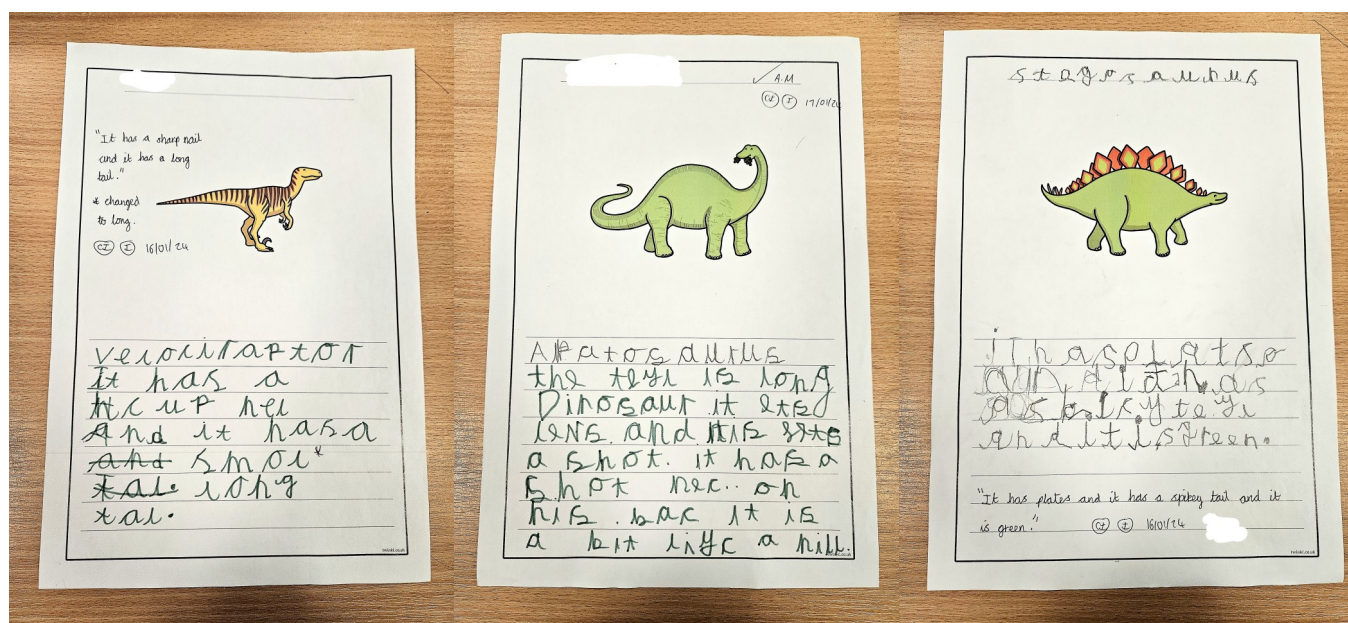 "It has a sharp nail
and it has a long
tail."
* changed
to long.
CI I 16/01/24
velociraptor
it has a
up nei
And it has a
and smol*
tal. long
tal.
twinkl.co.uk
✓ A.M
CI I 17/01/24
APatosaurus
the teyl is long
Dinosaur it ets
levs. and his
a shot. it has a
shot nec.. on
his. bac it is
a bit liyc a hill.
twinkl.co.uk
stagosaurus
it has plats
and it has
a spiky teyl
and it is green.
"It has plates and it has a spikey tail and it
is green." CI I 16/01/24
twinkl.co.uk